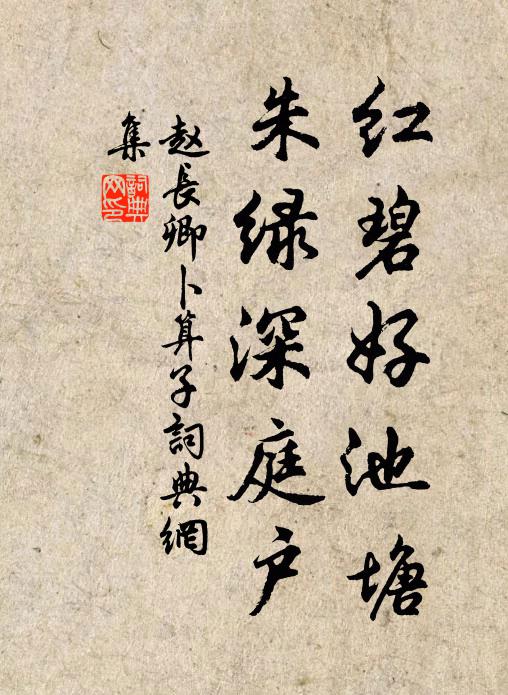 红碧好池塘
朱绿深庭户
赵長卿卜算子詞典網
集
詞典
网印